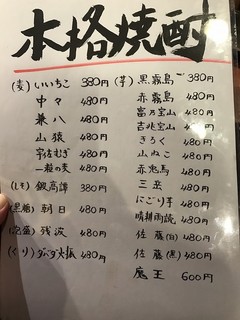 本格焼酎
(麦) いいちこ 380円
中々 480円
兼八 480円
山猿 480円
宇佐むぎ 480円
一粒の麦 480円
(しそ) 鍛高譚 380円
(黒糖) 朝日 480円
(泡盛) 残波 480円
(くり) ダバダ火振 480円
(芋) 黒霧島 380円
赤霧島 480円
富乃宝山 480円
吉兆宝山 480円
きろく 480円
山ねこ 480円
赤兎馬 480円
三岳 480円
にごり芋 480円
晴耕雨読 480円
佐藤(白) 480円
佐藤(黒) 480円
魔王 600円